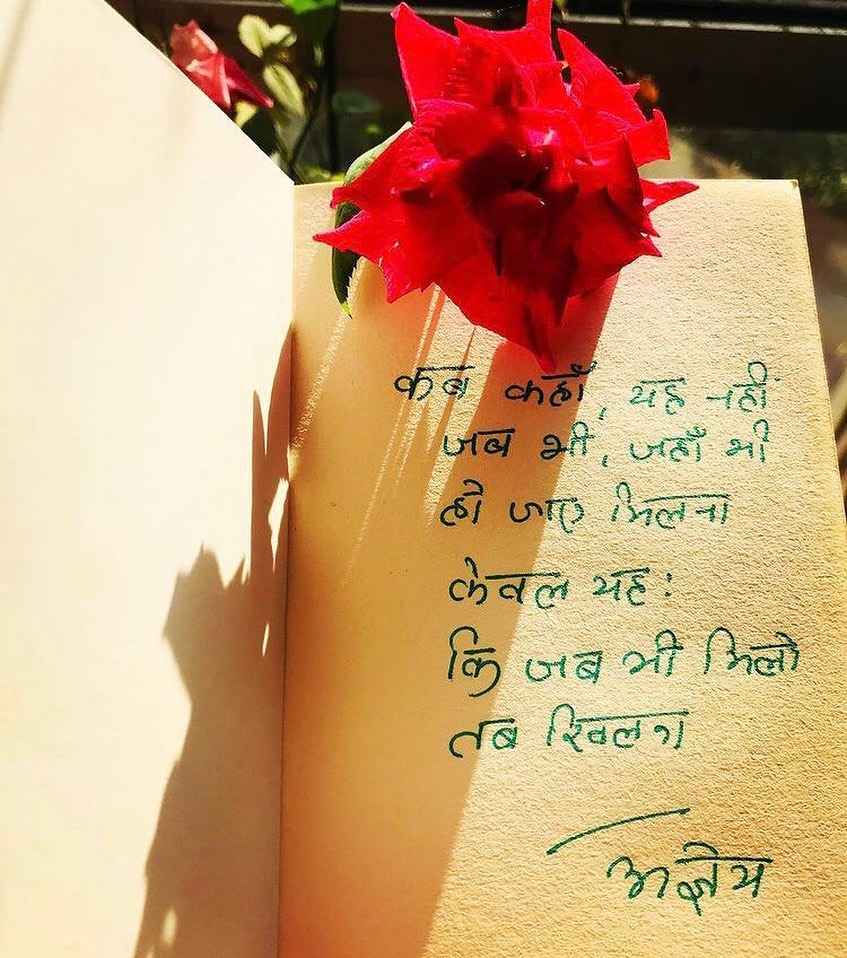 कब कहाँ, यह नहीं
जब भी, जहाँ भी
हो जाए मिलना
केवल यह:
कि जब भी मिलो
तब खिलना
अज्ञेय